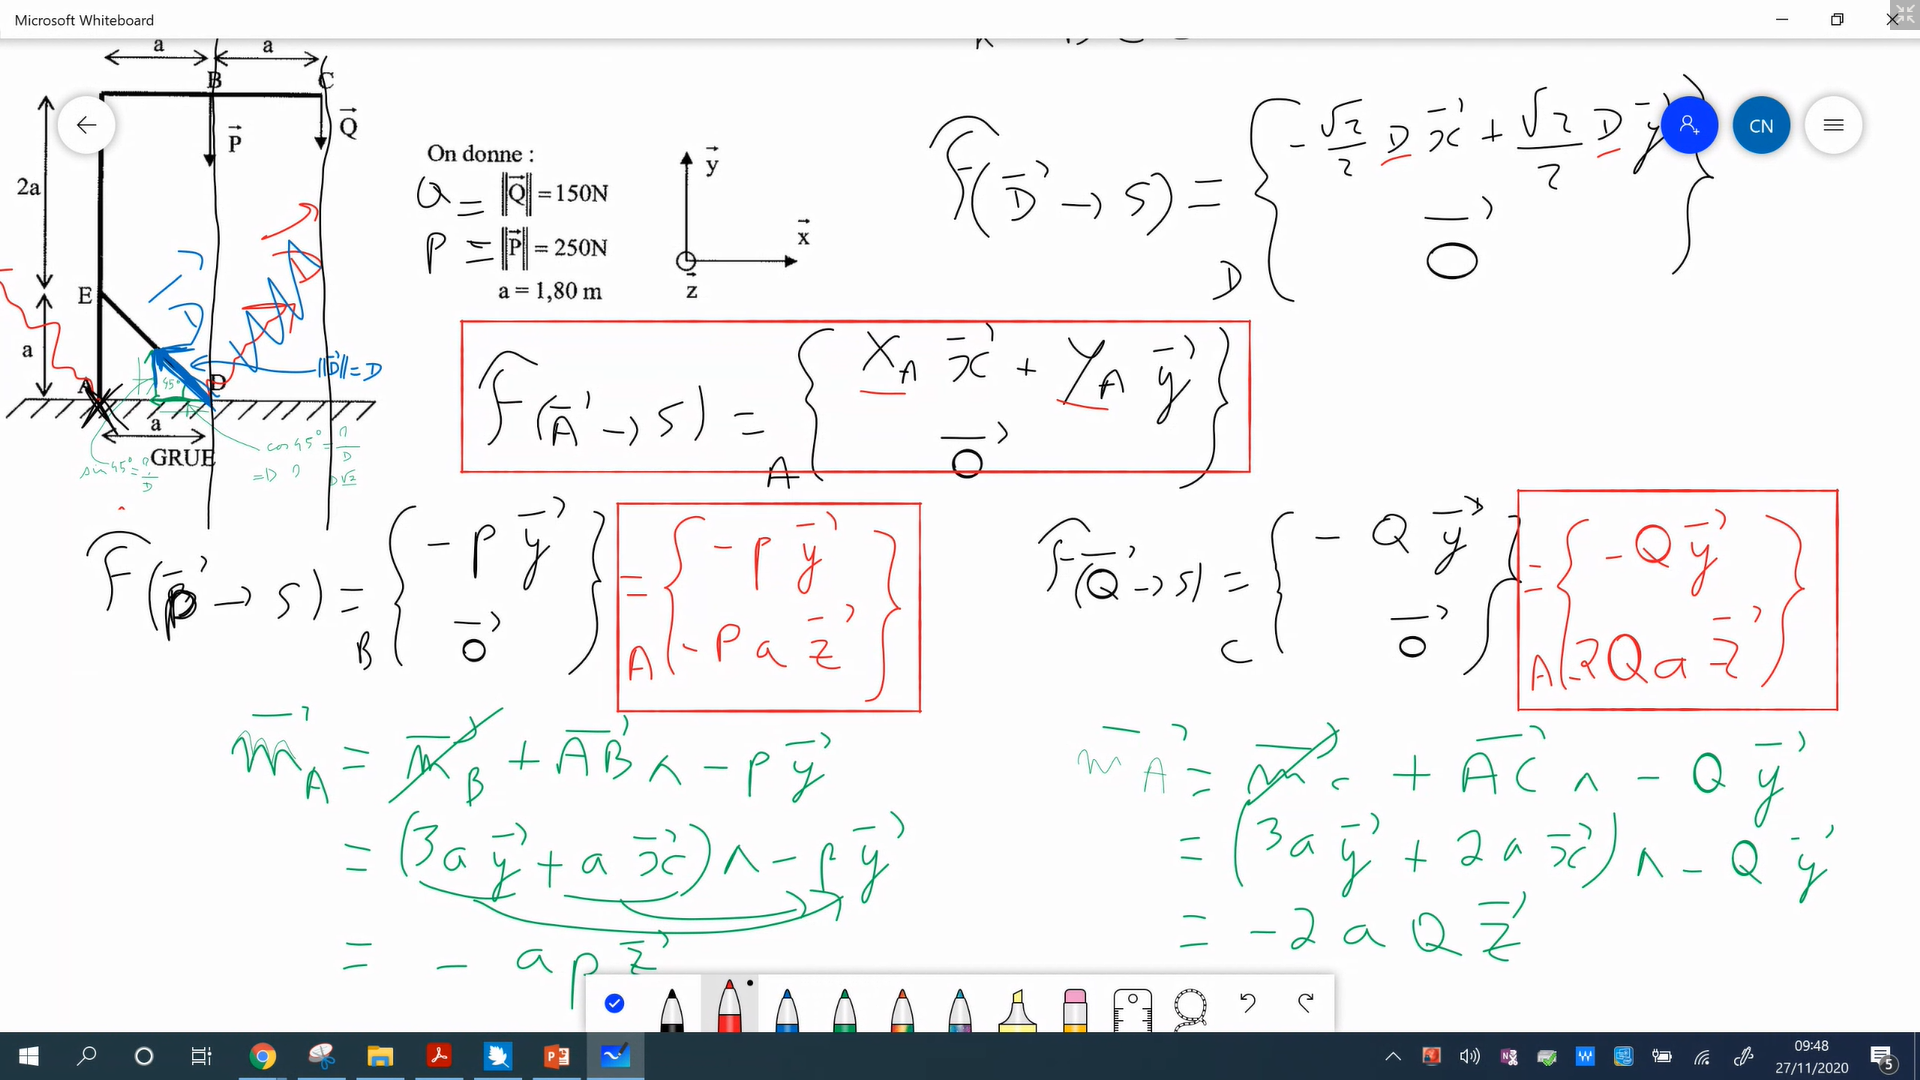 Microsoft Whiteboard
a a
B C
P⃗ Q⃗
2a
E
a
A D
a
45°
D⃗ D⃗
||D⃗|| = D
GRUE
sin 45° = ?/D
cos 45° = ?/D
On donne :
Q = ||Q⃗|| = 150N
P = ||P⃗|| = 250N
a = 1,80 m
y⃗
x⃗
z⃗
F(D⃗ → S) = D { -√2/2 D x⃗ + √2/2 D y⃗
0⃗ }
CN
F(A⃗ → S) = A { X_A x⃗ + Y_A y⃗
0⃗ }
F(P⃗ → S) = B { - P y⃗
0⃗ } = A { - P y⃗
- P a z⃗ }
F(Q⃗ → S) = C { - Q y⃗
0⃗ } = A { - Q y⃗
-2Qa z⃗ }
m⃗_A = m⃗_B + AB⃗ ∧ - P y⃗
= (3a y⃗ + a x⃗) ∧ - P y⃗
= - a P z⃗
m⃗_A = m⃗_C + AC⃗ ∧ - Q y⃗
= (3a y⃗ + 2a x⃗) ∧ - Q y⃗
= -2 a Q z⃗
09:48
27/11/2020
5